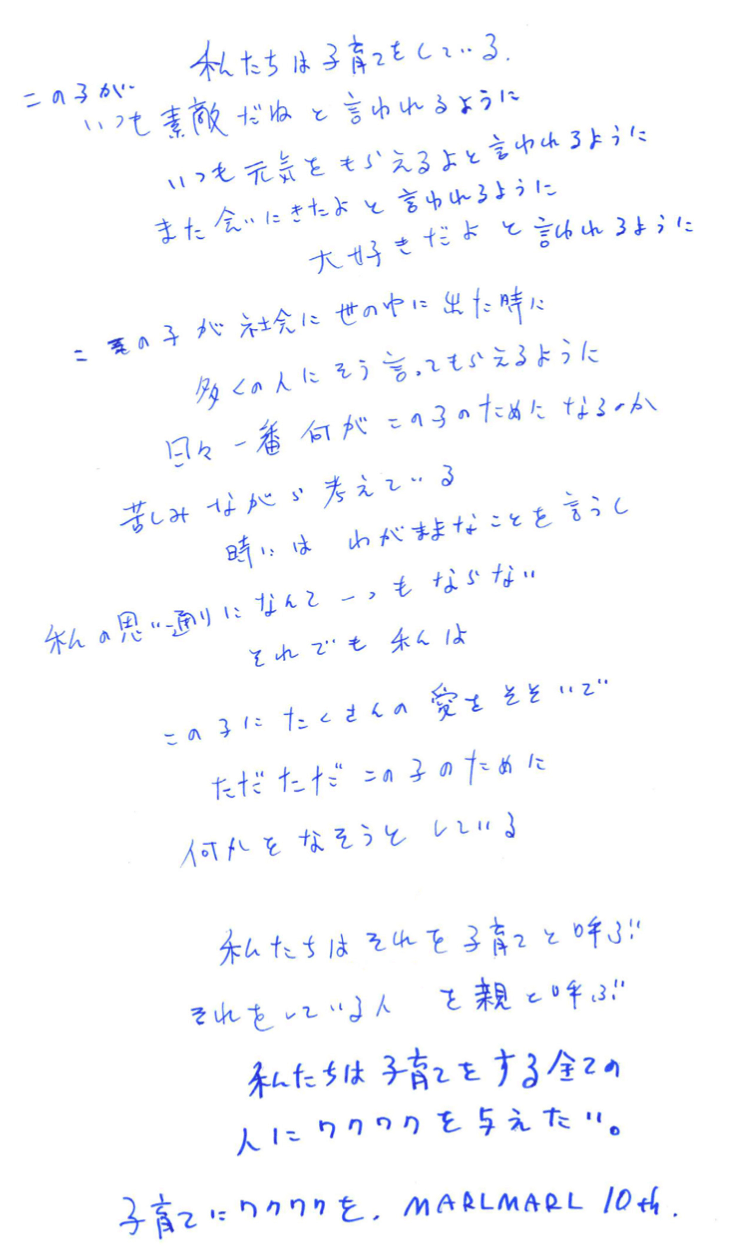 私たちは子育てをしている.
この子が
いつも素敵だねと言われるように
いつも元気をもらえるよと言われるように
また会いにきたよと言われるように
大好きだよと言われるように
この子が社会に世の中に出た時に
多くの人にそう言ってもらえるように
日々一番何がこの子のためになるのか
苦しみながら考えている
時にはわがままなことを言うし
私の思い通りになんて一つもならない
それでも私は
この子にたくさんの愛をそそいで
ただただこの子のために
何かをなそうとしている
私たちはそれを子育てと呼ぶ
それをしている人を親と呼ぶ
私たちは子育てをする全ての
人にワクワクを与えたい。
子育てにワクワクを. MARLMARL 10th.